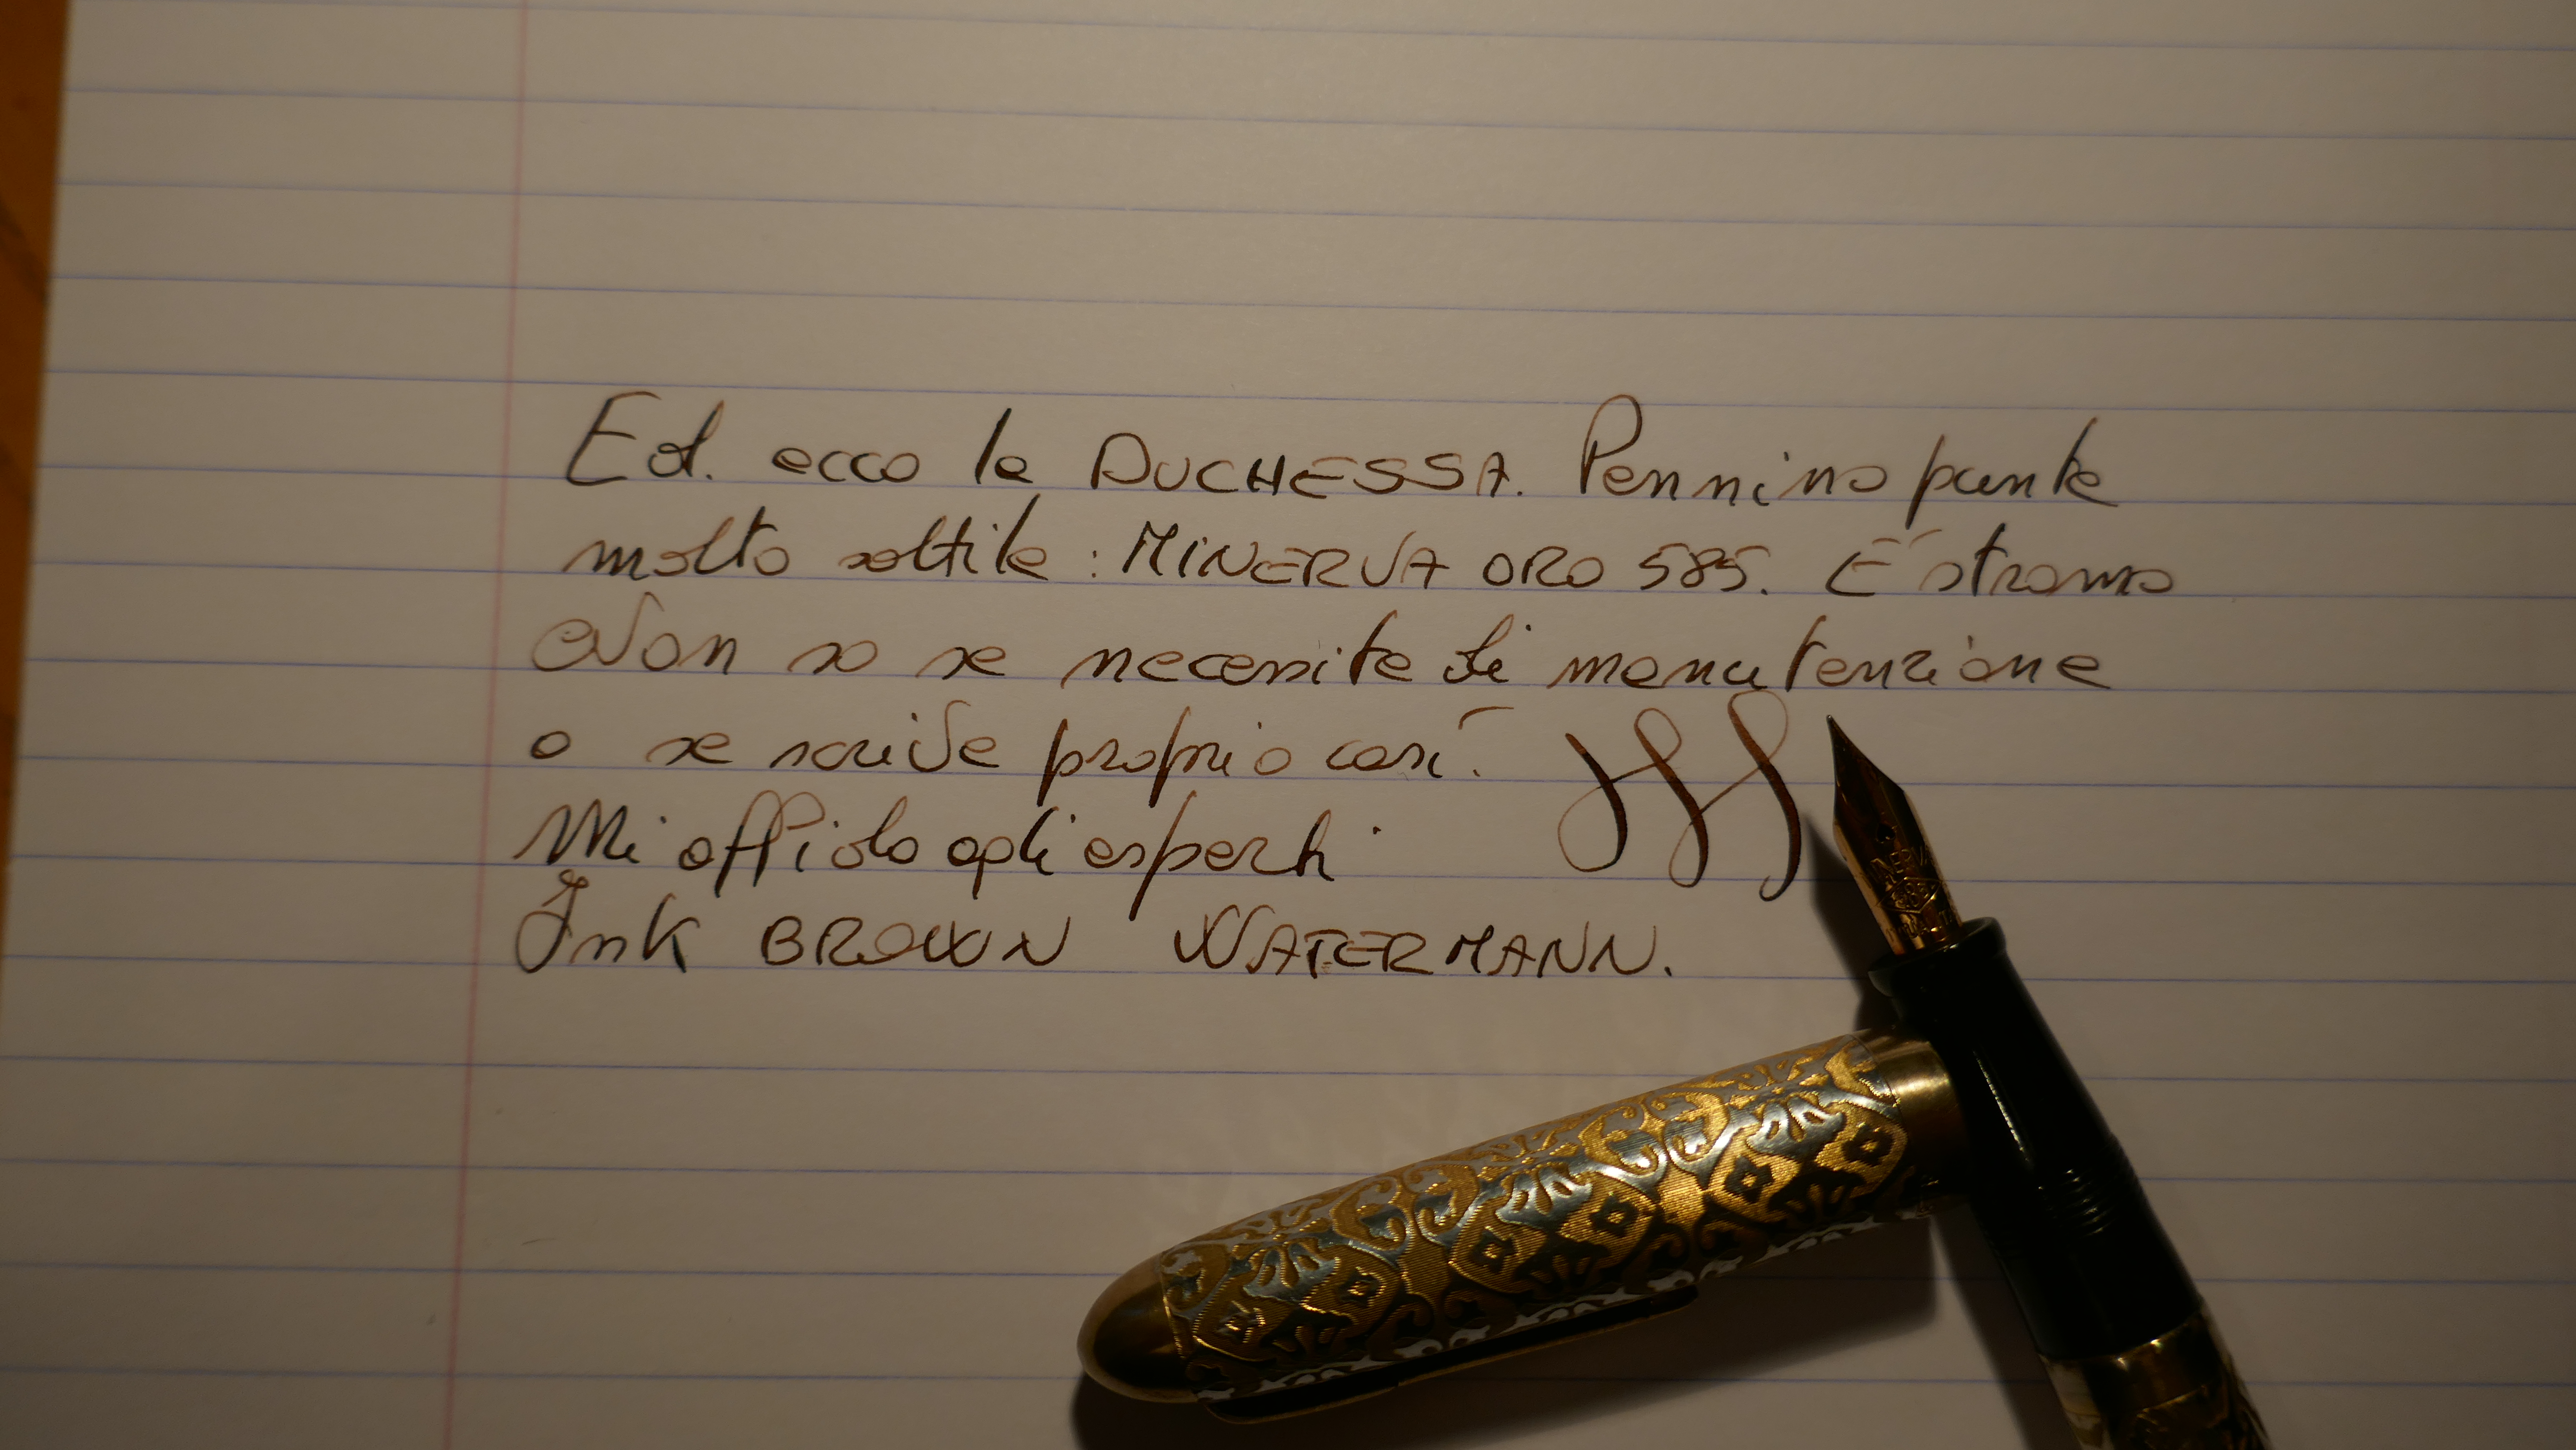 Ed. ecco la DUCHESSA. Pennino punta
molto sottile : MINERVA ORO 585. E' strano
Non so se necessita di manutenzione
o se scrive proprio così.
Mi affido agli esperti
Ink BROWN WATERMANN.
585